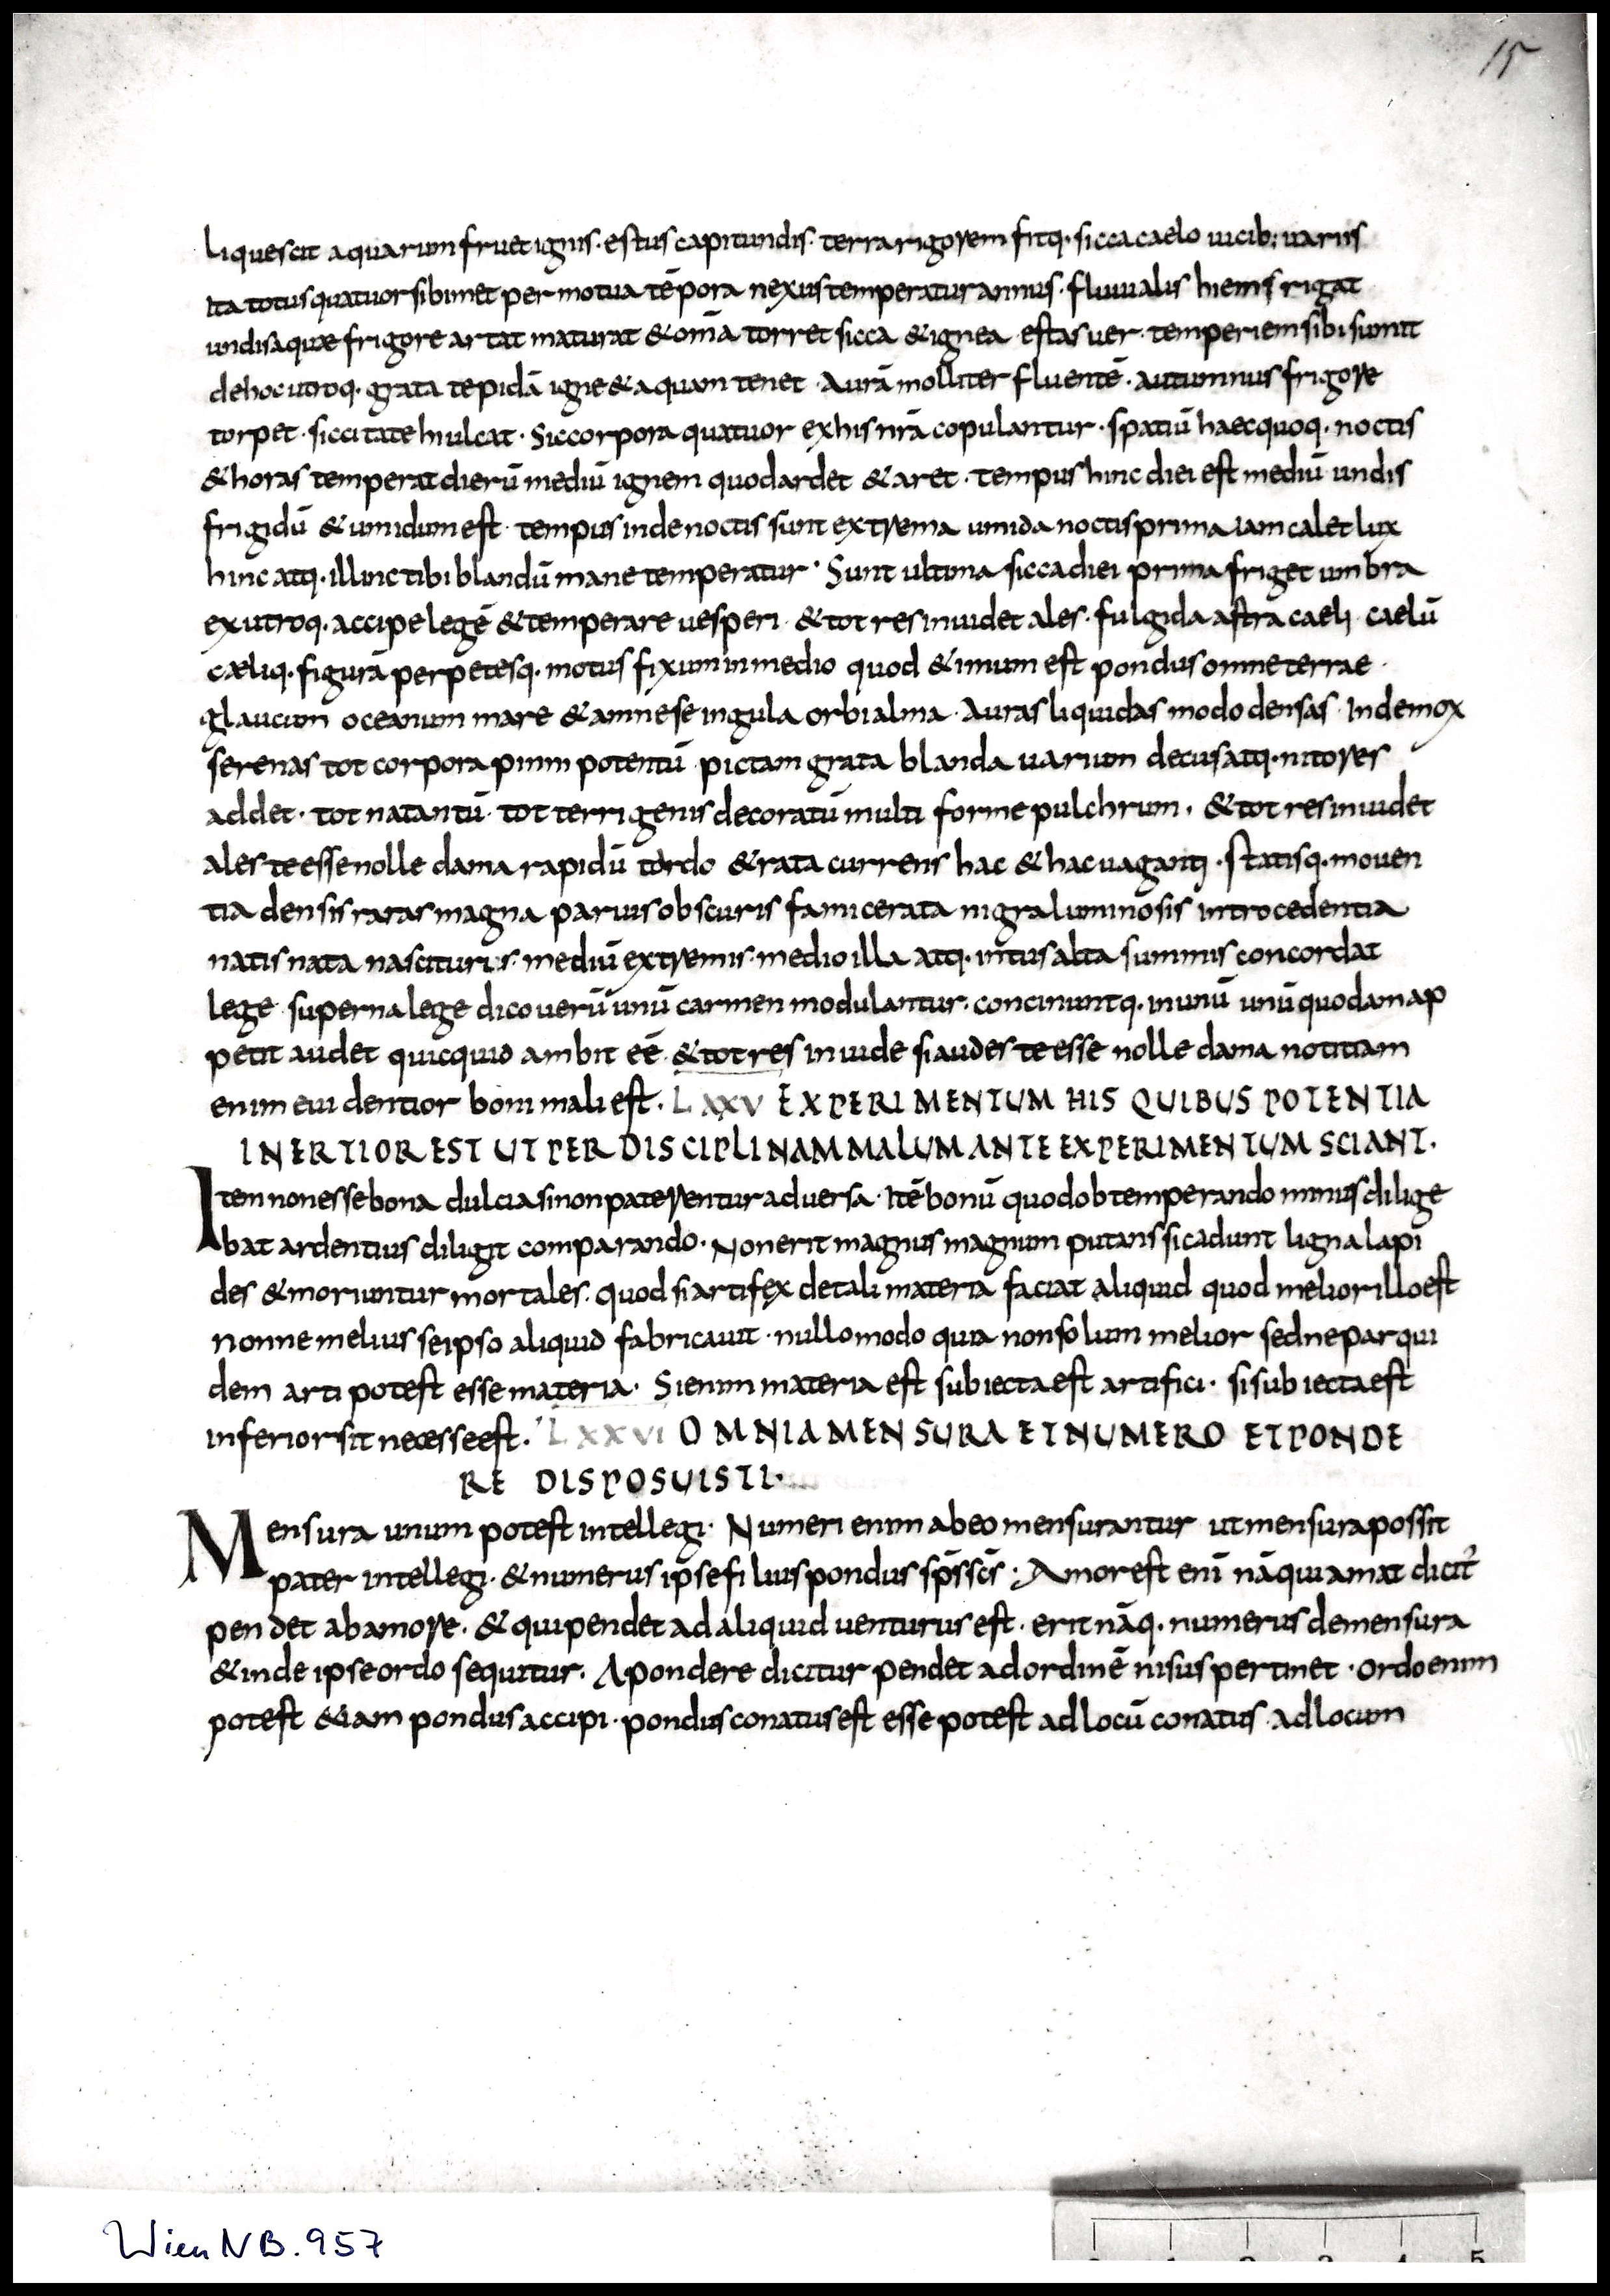 15
Liquescit aquarum fruet ignis · estus capit undis · terra rigorem fitq· sicca caelo uicib; uariis
Ita totus quatuor sibimet per motua tēpora nexus temperatur annus · fluuialis hiems rigat
undis aquae frigore artat maturat & om̄a torret sicca & ignea estas uer · temperiem sibi sumit
de hoc utroq· grata tepidā igne & aquam tenet · Aurā molliter fluentē · autumnus frigore
torpet · siccitate hiulcat · Sic corpora quatuor ex his nr̄a copulantur · spatiū haec quoq· noctis
& horas temperat dierū mediū ignem quod ardet & aret · tempus hinc diei est mediū undis
frigidū & umidum est · tempus inde noctis sunt extrema umida noctis prima iam calet lux
hinc atq· illinc tibi blandū mane temperatur · Sunt ultima sicca diei prima friget umbra
ex utroq· accipe legē & temperare uesperi · & tot res inuidet ales · fulgida astra caeli · caelū
caeliq· figurā perpetesq· motus fixum in medio quod & imum est pondus omne terrae ·
glaucum oceanum mare & amnes e ingula orbi alma · Auras liquidas modo densas · Inde mox
serenas tot corpora pinni potentū pictam grata blanda uarium decus atq· nitores
addet · tot natantū · tot terrigenis decoratū multi forme pulchrum · & tot res inuidet
ales te esse nolle dama rapidū tardo & rata currens hac & hac uaganti · statisq· mouen
tia densis raras magna paruis obscuris fammicerata nigra luminosis introcedentia
natis nata nascituris · mediū extremis · medio illa atq· intus alta summis concordat
lege · superna lege dico uerū unū carmen modulantur · concinuntq· in unū unū quodam ap
petit audet quicquid ambit eē & tot res inuide si audes te esse nolle dama notitiam
enim euidentior boni mali est · LXXV EXPERIMENTUM HIS QUIBUS POTENTIA
INERTIOR EST UT PER DISCIPLINAM MALUM ANTE EXPERIMENTUM SCIANT ·
Item non esse bona dulcia si non paterentur aduersa · Itē bonū quod obtemperando minus dilige
bat ardentius diligit comparando · Non erit magnus magnum putans si cadunt ligna lapi
des & moriuntur mortales · quod si artifex de tali materia faciat aliquid quod melior illo est
nonne melius se ipso aliquid fabricauit · nullo modo quia non solum melior sed ne par qui
dem arti potest esse materia · Si enim materia est subiecta est artifici · si subiecta est
inferior sit necesse est · LXXVI OMNIA MENSURA ET NUMERO ET PONDE
RE DISPOSUISTI ·
Mensura unum potest intellegi · Numeri enim ab eo mensurantur ut mensura possit
pater intellegi · & numerus ip̄se filius pondus sp̄s sc̄s · Amor est enī nāqui amat dicit᷑
pendet ab amore · & qui pendet ad aliquid uenturus est · erit nāq· numerus de mensura
& inde ipse ordo sequitur · A pondere dicitur pendet ad ordinē nisus pertinet · ordo enim
potest &iam pondus accipi · pondus conatus est esse potest ad locū conatus ad locum
Wien NB. 957
0 1 2 3 4 5